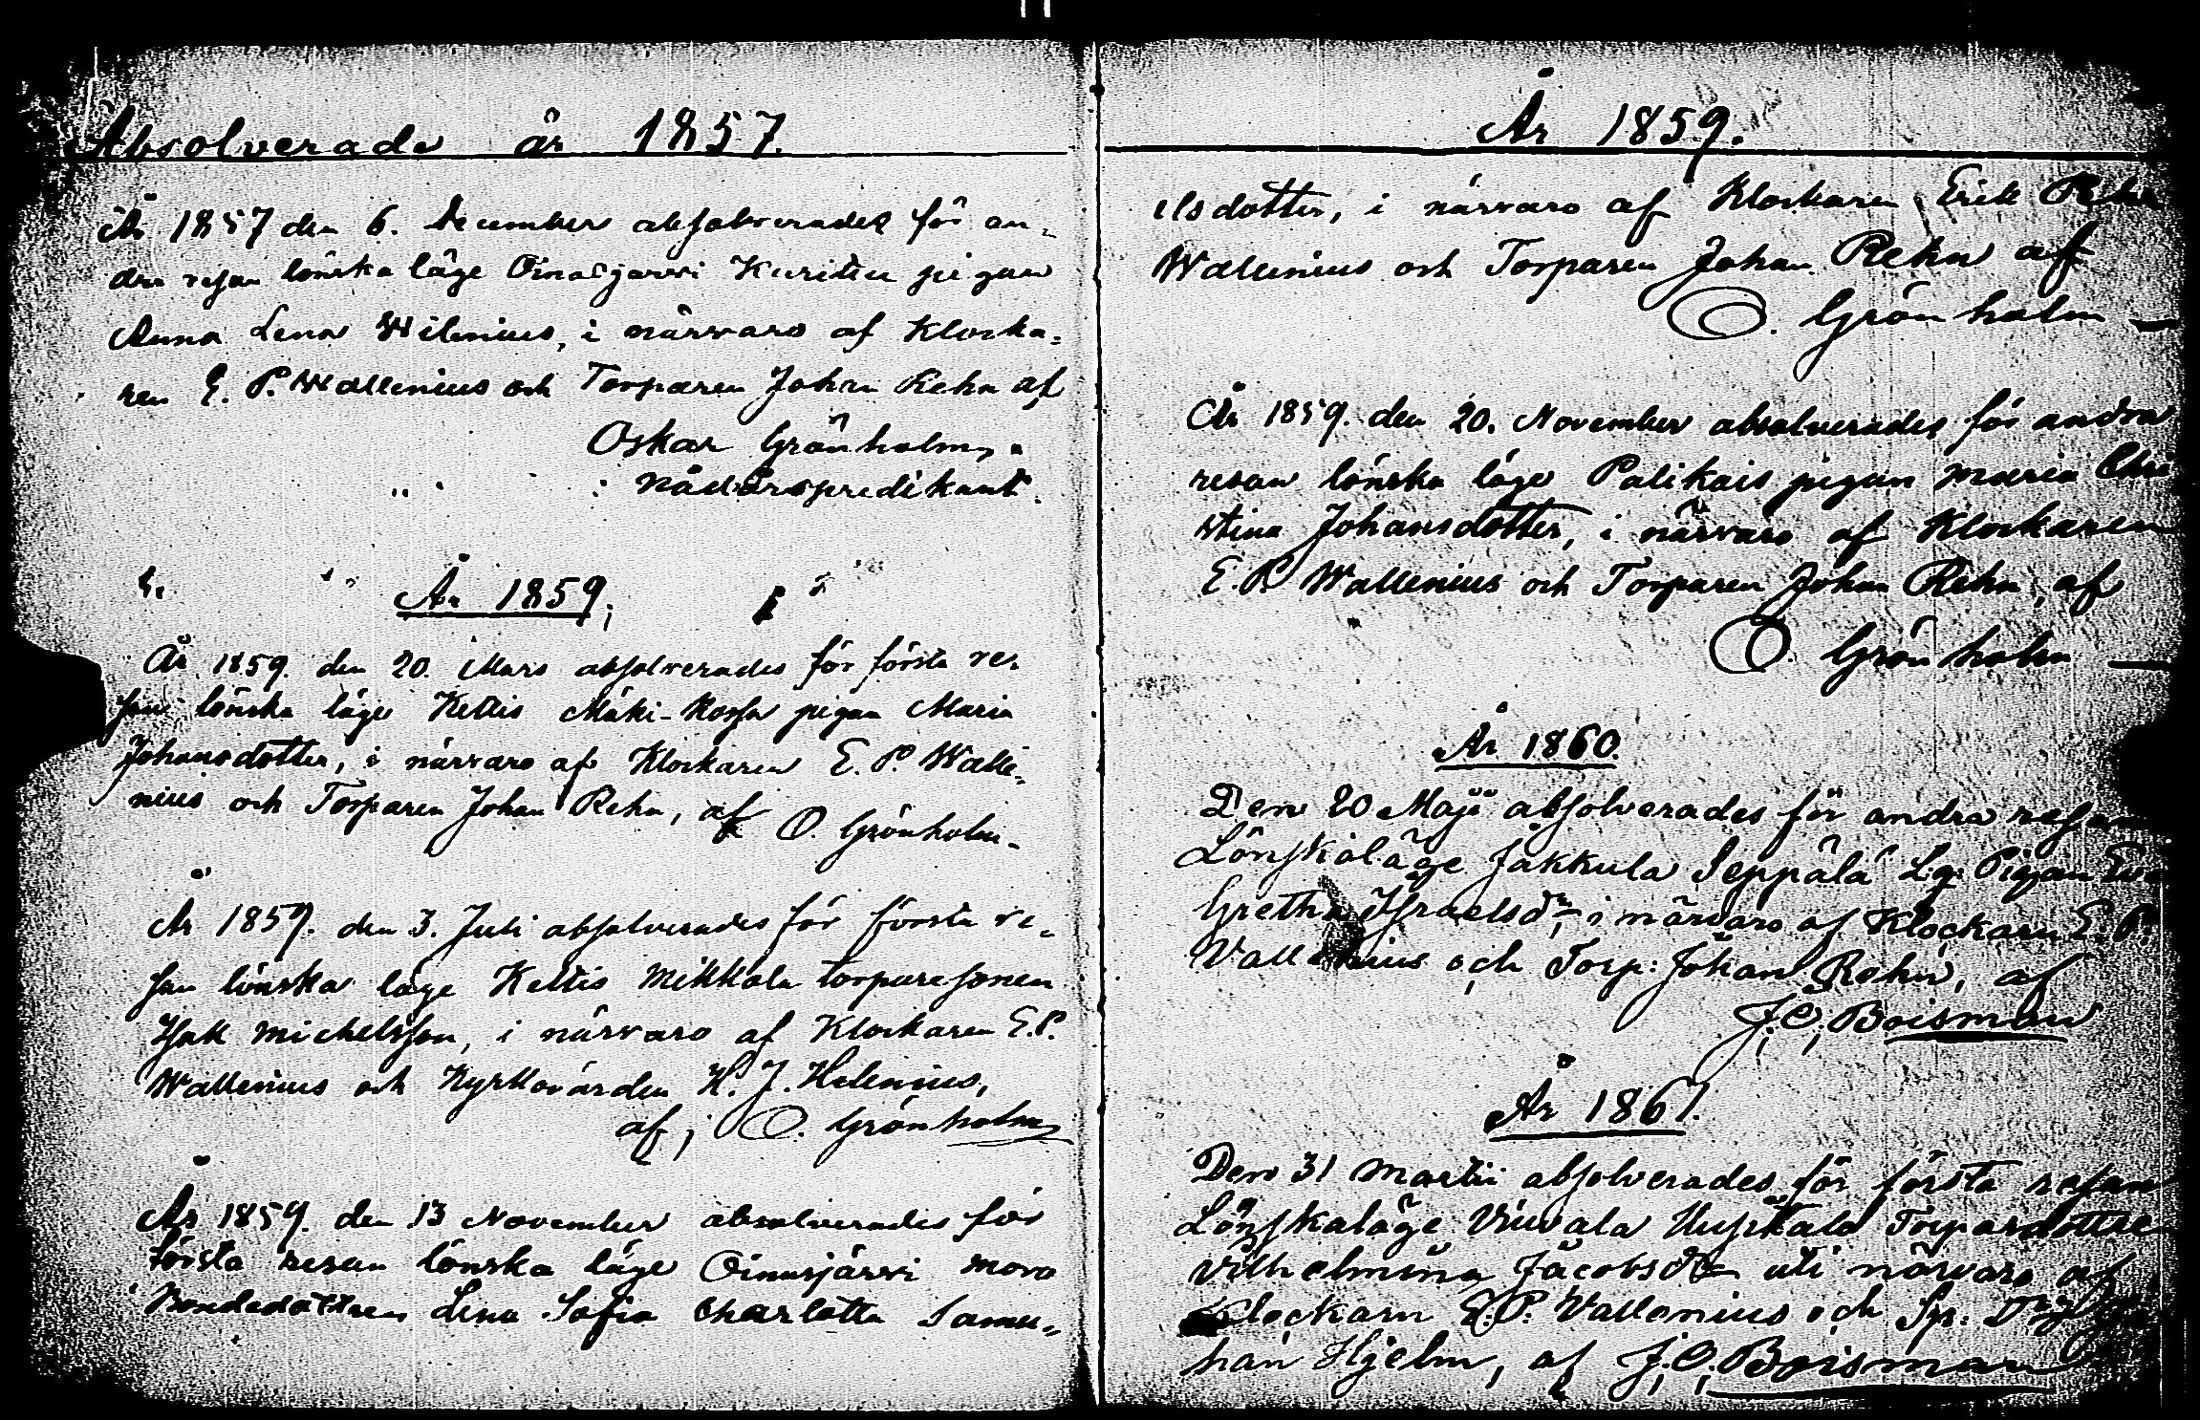 Absolverade år 1857.
År 1857 den 6. December absolverades för an-
dra resan lönska läge Oinasjärvi pigan
Anna Lena Wilenius, i närvaro af Klocka-
ren E. P. Wallenius och Torparen Johan Rehn af
Oskar Grönholm,
nådårspredikant.
År 1859.
År 1859. den 20. Mars absolverades för första re-
san lönska läge Kettis Mäki-Korsu pigan Maria
Johansdotter, i närvaro af Klockaren E. P. Walle-
nius och Torparen Johan Rehn, af O. Grönholm.
År 1859. den 3. Juli absolverades för första re-
san lönska läge Kettis Mikkola torparesonen
Isak Michelsson, i närvaro af Klockaren E. P.
Wallenius och Kyrkovärden H. J. Helenius,
af, O. Grönholm
År 1859. den 13 November absolverades för
första resan lönska läge Oinusjärvi
Bondedottren Lena Sofia Charlotta Samu-
År 1859.
elsdotter, i närvaro af Klockaren Erik
Wallenius och Torparen Johan Rehn af
O. Grönholm
År 1859. den 20. November absolverades för andra
resan lönska läge Palikais pigan Maria Chri
stina Johansdotter, i närvaro af Klockaren
E. P. Wallenius och Torparen Johan Rehn, af
O. Grönholm
År 1860.
Den 20 Maji absolverades för andra resan
Lönskaläge Jakkula Seppälä Lg: Pigan Eva
Gretha Israelsdr, i närvaro af Klockarn E. P.
Vallenius och Torp: Johan Rehn, af
J. O. Boisman
År 1861.
Den 31 Martii absolverades för första resan
Lönskaläge Torpardottre
Vilhelmina Jacobsdr uti närvaro af
Klockarn E. P. Vallenius och
han Hjelm, af J. O. Boisman